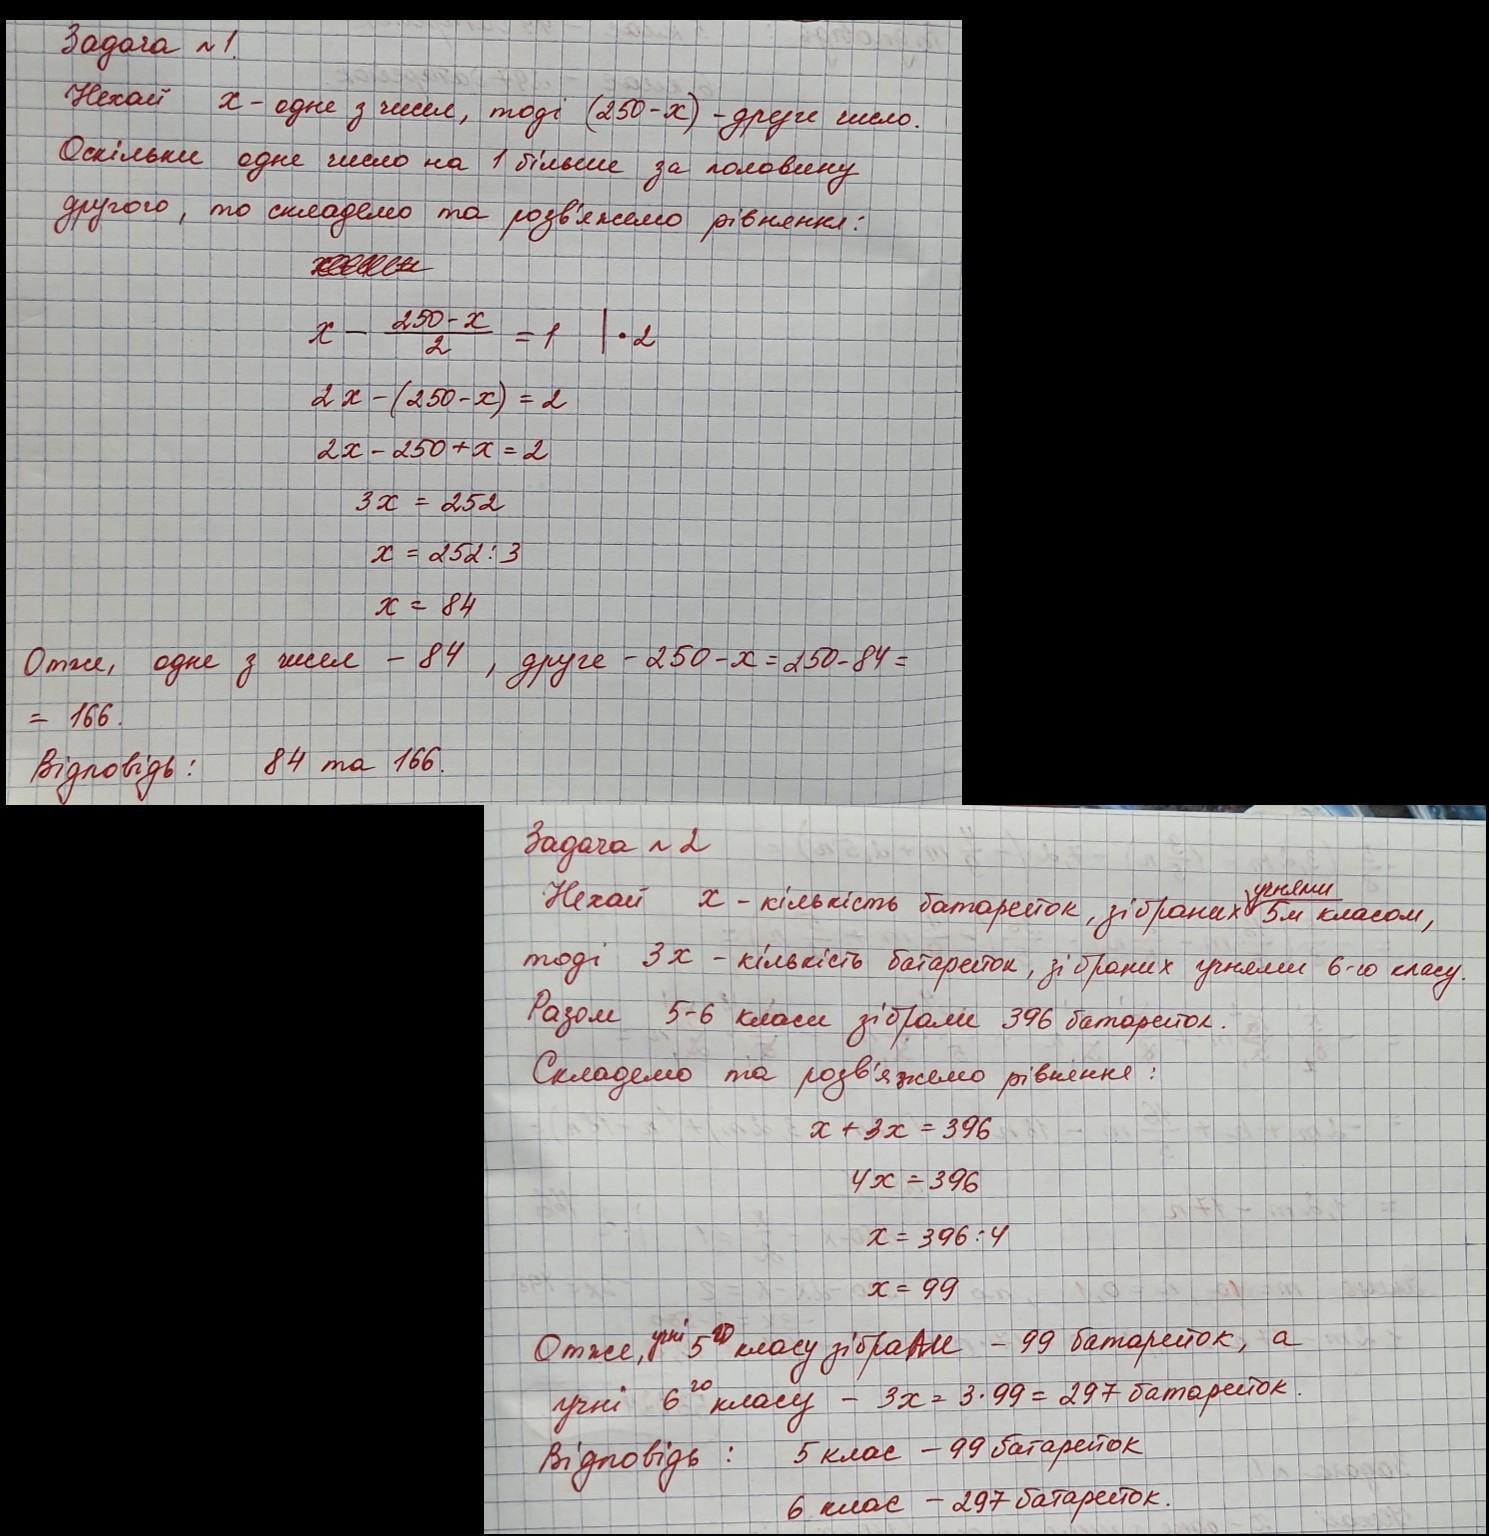 Задача №1.
Нехай x - одне з чисел, тоді (250-x) - друге число.
Оскільки одне число на 1 більше за половину
другого, то складемо та розв'яжемо рівняння:
x - \frac{250-x}{2} = 1 | · 2
2x - (250-x) = 2
2x - 250 + x = 2
3x = 252
x = 252 : 3
x = 84
Отже, одне з чисел - 84, друге - 250 - x = 250 - 84 =
= 166.
Відповідь: 84 та 166.
Задача №2
Нехай x - кількість батарейок, зібраних учнями 5м класом,
тоді 3x - кількість батарейок, зібраних учнями 6-го класу.
Разом 5-6 класи зібрали 396 батарейок.
Складемо та розв'яжемо рівняння:
x + 3x = 396
4x = 396
x = 396 : 4
x = 99
Отже, учні 5го класу зібрали - 99 батарейок, а
учні 6го класу - 3x = 3·99 = 297 батарейок.
Відповідь: 5 клас - 99 батарейок
6 клас - 297 батарейок.